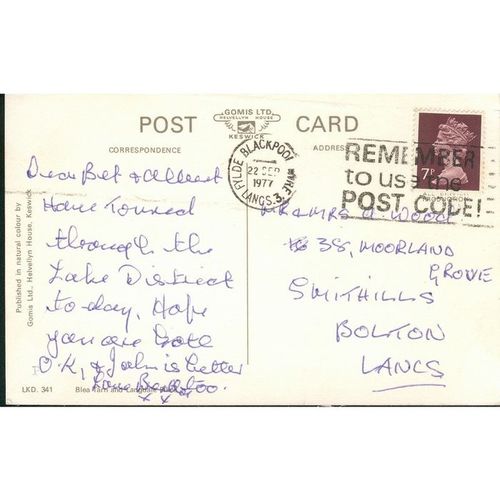 GOMIS LTD.
HELVELLYN HOUSE
KESWICK
POST CARD
CORRESPONDENCE
ADDRESS
FYLDE BLACKPOOL WYRE
22 SEP
1977
LANCS 3
REMEMBER
to use the
POST CODE!
7P
Dear Bet & Albert
Have Toured
through the
Lake District
today, Hope
you are both
O.K, & John is better
too.
MR & MRS A WOOD
38, MOORLAND
GROVE
SMITHILLS
BOLTON
LANCS
Published in natural colour by
Gomis Ltd., Helvellyn House, Keswick
LKD. 341
Blea Tarn and Langdale